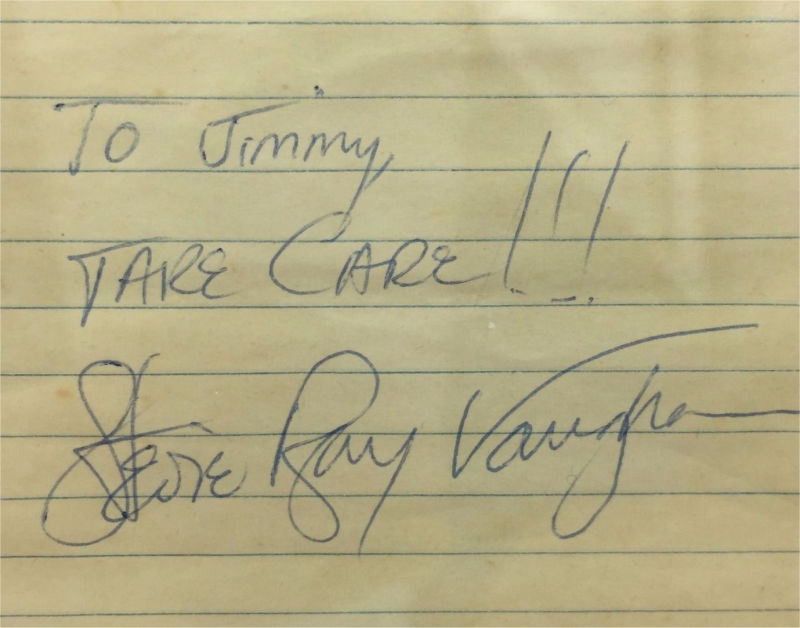 To Jimmy,
TAKE CARE!!!
Stevie Ray Vaughan